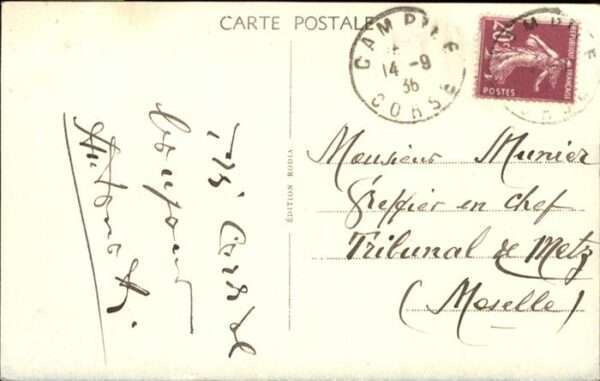 CARTE POSTALE
CAMPILE
14-9
36
CORSE
20c
REPUBLIQUE FRANÇAISE
POSTES
Très Cordial
bonjour
ÉDITION RODIA
Monsieur Munier
Greffier en chef
Tribunal de Metz
(Moselle)